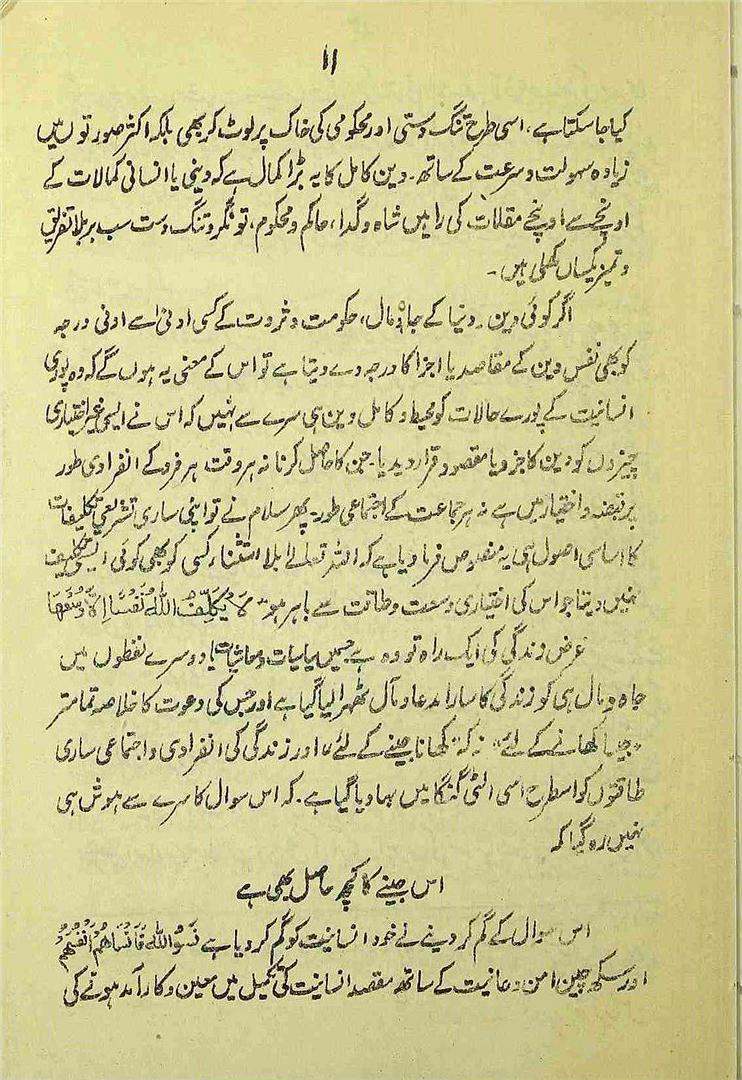 ۱۱
کیا جا سکتا ہے، اسی طرح تنگ دستی اور محکومی کی خاک پر لوٹ کر بھی بلکہ اکثر صورتوں میں
زیادہ سہولت و سرعت کے ساتھ۔ دین کامل کا یہ بڑا کمال ہے کہ دینی یا انسانی کمالات کے
اونچے سے اونچے مقلات کی راہیں شاہ و گدا، حاکم و محکوم، تونگر و تنگ دست سب پر بلا تفریق
و تمیز یکساں کھلی ہیں۔
اگر کوئی دین۔ دنیا کے جاہ و مال، حکومت و ثروت کے کسی ادنیٰ اسے ادنی درجہ
کو بھی نفس دین کے مقاصد یا اجزا کا درجہ دے دیتا ہے تو اس کے معنی یہ ہوں گے کہ وہ پوری
انسانیت کے پورے حالات کو محیط و کامل دین ہی سرے سے نہیں کہ اس نے ایسی غیر اختیاری
چیزوں کو دین کا جزو یا مقصود قرار دیدیا۔ جن کا حاصل کرنا نہ ہر وقت ہر فرد کے انفرادی طور
پر قبضہ و اختیار میں ہے نہ ہر جماعت کے اجتماعی طور۔ پھر سلام نے تو اپنی ساری تشریعی تکلیفات
کا اساسی اصول ہی یہ منصوص فرما دیا ہے کہ اللہ تعالےٰ بلا استثناء کسی کو بھی کوئی ایسی تکلیف
نہیں دیتا جو اس کی اختیاری وسعت و طاقت سے باہر ہو۔ لَا یُکَلِّفُ اللّٰہُ نَفْسًا اِلَّا وُسْعَھَا
غرض زندگی کی ایک راہ تو وہ ہے جسمیں سیاسیات و معاشیات یا دوسرے لفظوں میں
جاہ و مال ہی کو زندگی کا سارا مدعا و مآل ٹھہرا لیا گیا ہے اور جس کی دعوت کا خلاصہ تمامتر
"جینا کھانے کے لئے" نہ کہ "کھانا جینے کے لئے" اور زندگی کی انفرادی و اجتماعی ساری
طاقتوں کو اسطرح اسی الٹی گنگا میں بہا دیا گیا ہے۔ کہ اس سوال کا سرے سے ہوش ہی
نہیں رہ گیا کہ
اس جینے کا کچھ حاصل بھی ہے
اس سوال کے گم کر دینے نے خود انسانیت کو گم کر دیا ہے نَسُوا اللّٰہَ فَاَنْسَاھُمْ اَنْفُسَھُمْ
اور سکھ چین امن و عافیت کے ساتھ مقصد انسانیت کی تکمیل میں معین و کار آمد ہونے کی